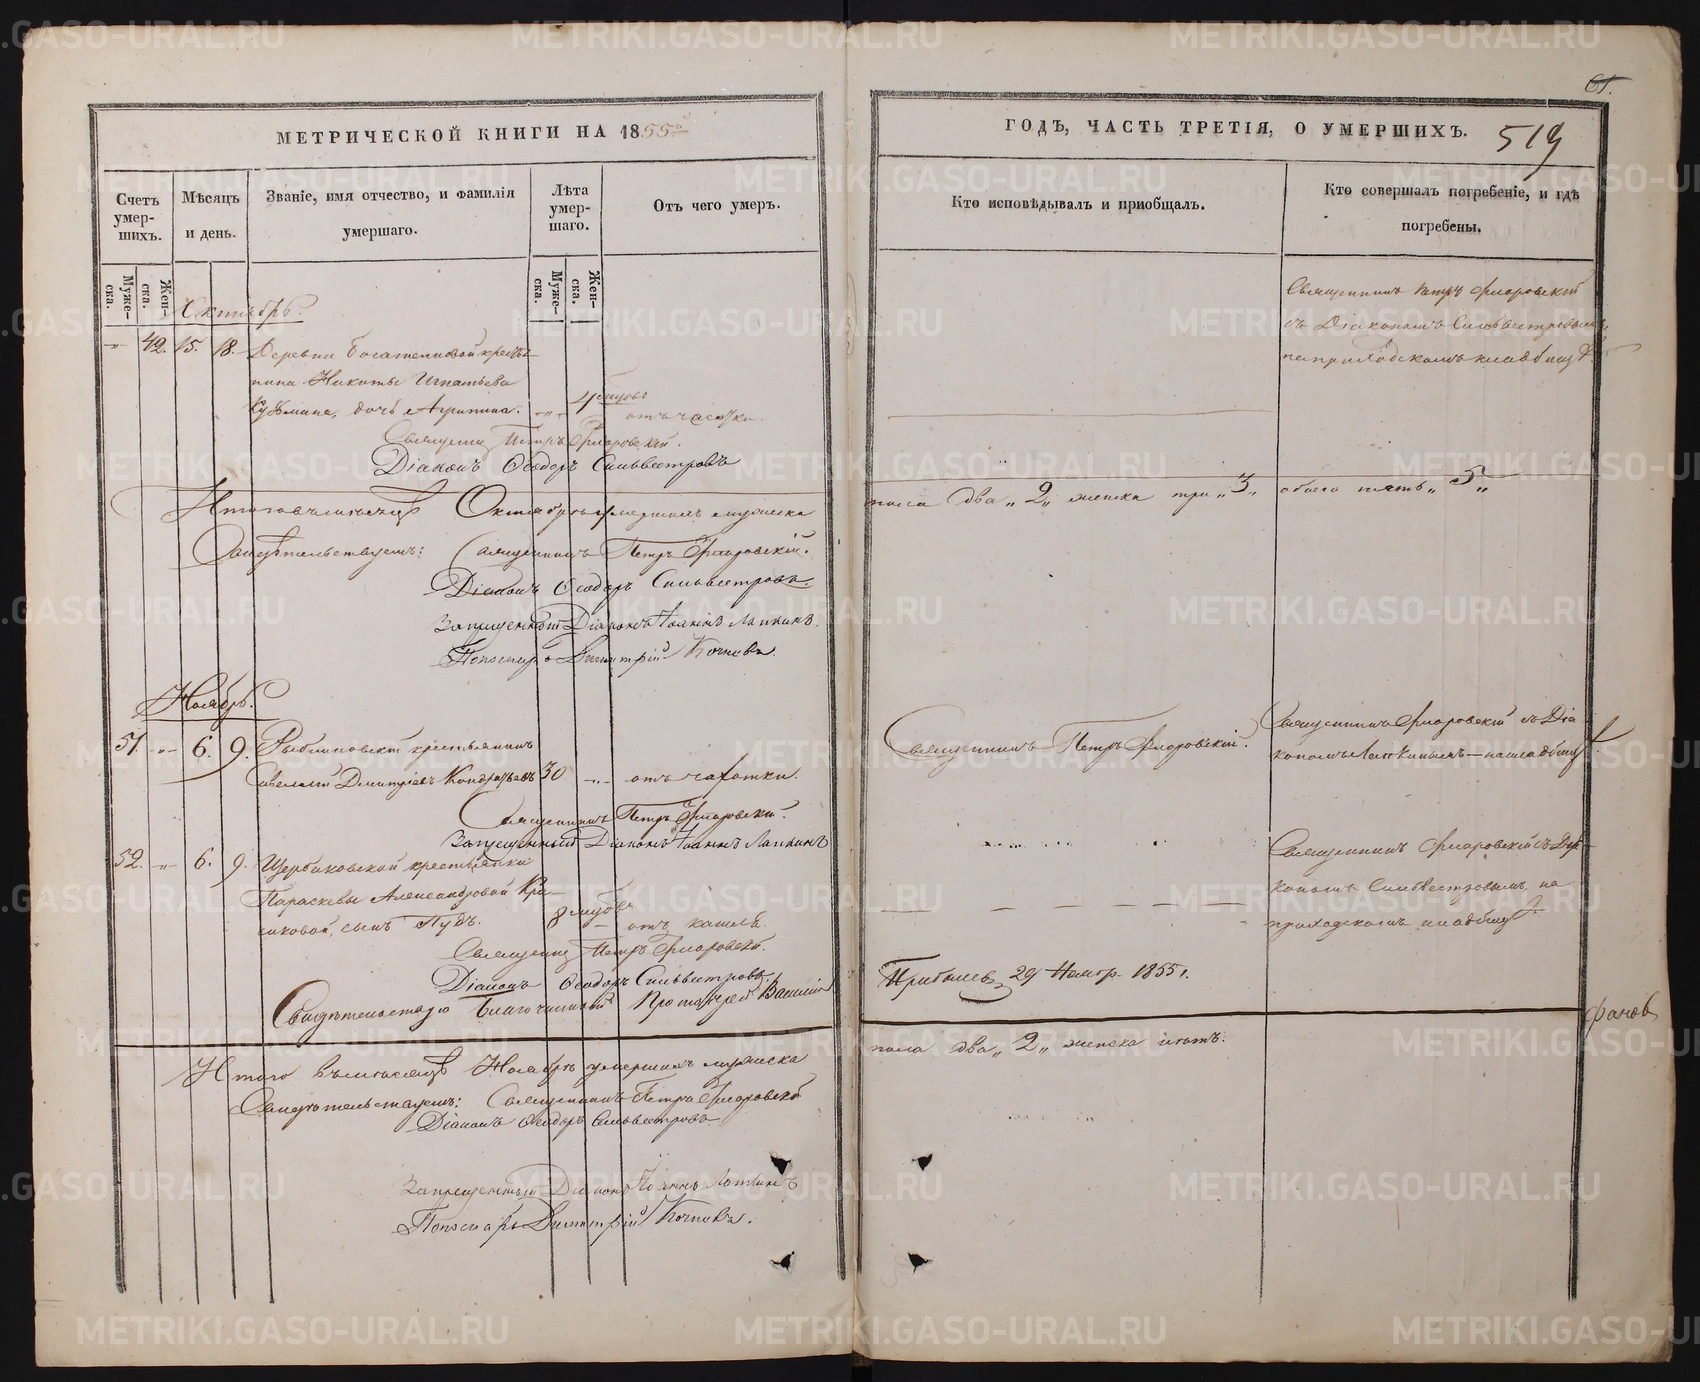 МЕТРИЧЕСКОЙ КНИГИ НА 1855й
Счетъ умер-шихъ.
Мѣсяцъ и день.
Званіе, имя отчество, и фамилія умершаго.
Лѣта умер-шаго.
Отъ чего умеръ.
Муже-ска.
Жен-ска.
Муже-ска.
Жен-ска.
Октябрь.
42. 15. 18. Деревни крестья-
нина Никиты Игнатьева
Кузмина, дочь Агрипина. 4 отъ
Священ. Петръ Флоровскій.
Діаконъ Ѳеодоръ Сильвестровъ
Итого въ мѣсяцѣ Октябрѣ умершихъ мужеска
Свидѣтельствуемъ: Священникъ Петръ Флоровскій.
Діаконъ Ѳеодоръ Сильвестровъ.
Запрещенный Діаконъ Іоаннъ Лапкинъ.
Пономарь Димитрій Кочневъ.
Ноябрь.
51. 6. 9. крестьянинъ
Савелій Дмитріевъ Кондратьевъ 30 отъ чахотки.
Священникъ Петръ Флоровскій.
Запрещенный Діаконъ Іоаннъ Лапкинъ
52. 6. 9. Щербаковской крестьянки
Параскевы Александровой
сынъ 8 отъ кашля.
Священ. Петръ Флоровскій.
Діаконъ Ѳеодоръ Сильвестровъ.
Свидѣтельствую Благочинный Протоіерей Василій
Итого въ мѣсяцѣ Ноябрѣ умершихъ мужеска
Свидѣтельствуемъ: Священникъ Петръ Флоровскій
Діаконъ Ѳеодоръ Сильвестровъ
Запрещенный Діаконъ Іоаннъ Лапкинъ
Пономарь Димитрій Кочневъ.
61.
ГОДЪ, ЧАСТЬ ТРЕТІЯ, О УМЕРШИХЪ.
519
Кто исповѣдывалъ и приобщалъ.
Кто совершалъ погребеніе, и гдѣ погребены.
Священникъ Петръ Флоровскій
съ Діакономъ Сильвестровымъ,
на приходскомъ кладбищѣ.
пола два „2„ женска три „3„ обоего пять „5„
Священникъ Петръ Флоровскій.
Священникъ Флоровскій съ Діа-
кономъ Лапкинымъ на кладбищѣ.
Священникъ Флоровскій съ Діа-
кономъ Сильвестровымъ на
приходскомъ кладбищѣ.
29 Ноябр. 1855 г.
пола два „2„ женска
METRIKI.GASO-URAL.RU